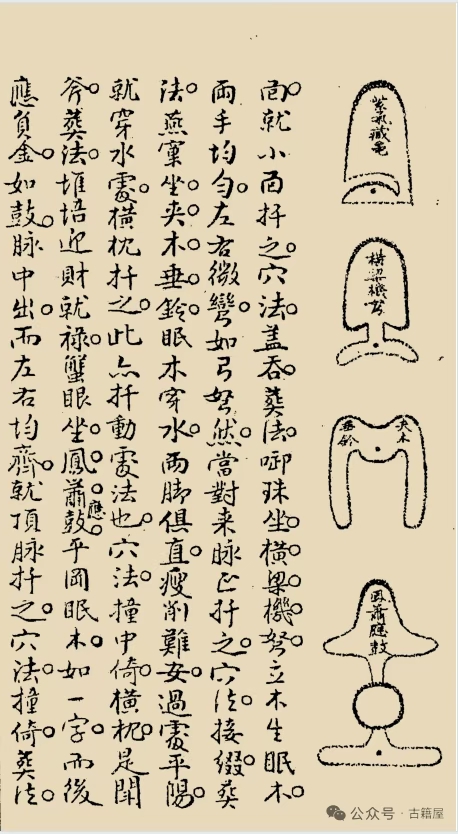 紫氣藏龜
橫梁機弩
夾木
垂鈴
鳳簫應鼓
面就小面扦之穴法蓋吞葬法啣珠坐橫梁機弩立木生眠木
両手均勻左右微彎如弓弩然當對来脉正扦之穴法接綴葬
法燕窠坐夾木垂鈴眠木穿水両脚俱直瘦削難安過處平陽
就穿水處橫枕扦之此亦扦動處法也穴法撞中倚橫枕是開
斧葬法堆培迎財就祿蟹眼坐鳳簫應鼓平岡眠木如一字而後
應負金如鼓脉中出而左右均齊就頂脉扦之穴法撞倚葬法
公众号·古籍屋